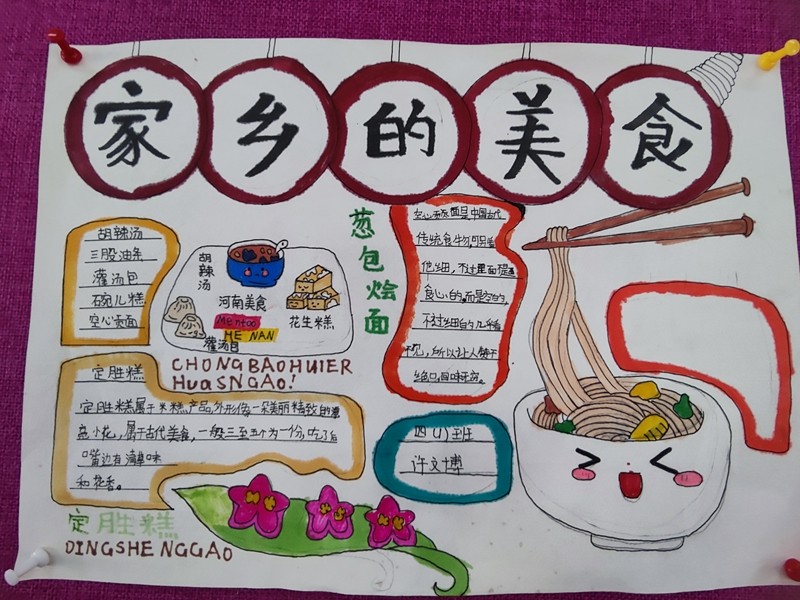 家乡的美食
胡辣汤
三股油条
灌汤包
碗儿糕
空心贡面
胡辣汤
河南美食
花生糕
Mentoo
HE NAN
灌汤包
CHONGBAOHUIER
HUaSNGAO!
葱包烩面
空心贡面是中国古代
传统食物,
他细,不过里面
食心的,而是空的。
不过细的几乎看
不见,所以让人赞不
绝口,回味无穷。
定胜糕
定胜糕属于米糕产品,外形像一朵美丽精致的
小花,属于古代美食,一般三至五个为一份,吃了后
嘴边有清单味
和花香。
四(1)班
许文博
定胜糕
DINGSHENGGAO